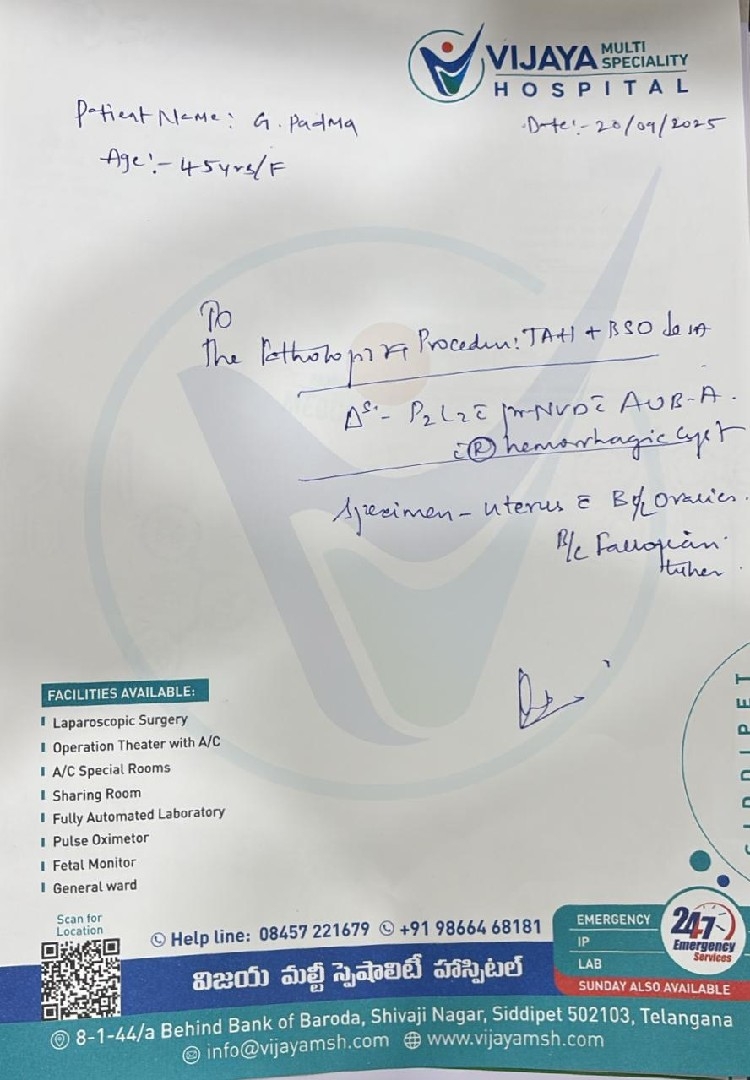 VIJAYA MULTI SPECIALITY
HOSPITAL
Patient Name: G. Padma
Date:- 20/09/2025
Age:- 45yrs/F
To
The Pathologist Procedure: TAH + BSO done
Δs:- P2L2 c̄ pr-NVD c̄ AUB-A.
c̄ (R) hemorrhagic cyst
Specimen - uterus c̄ B/L Ovaries.
B/L Fallopian
tubes.
FACILITIES AVAILABLE:
Laparoscopic Surgery
Operation Theater with A/C
A/C Special Rooms
Sharing Room
Fully Automated Laboratory
Pulse Oximetor
Fetal Monitor
General ward
SIDDIPET
Scan for
Location
Help line: 08457 221679 +91 98664 68181
EMERGENCY
IP
LAB
SUNDAY ALSO AVAILABLE
24x7
Emergency
Services
విజయ మల్టీ స్పెషాలిటీ హాస్పిటల్
8-1-44/a Behind Bank of Baroda, Shivaji Nagar, Siddipet 502103, Telangana
info@vijayamsh.com www.vijayamsh.com